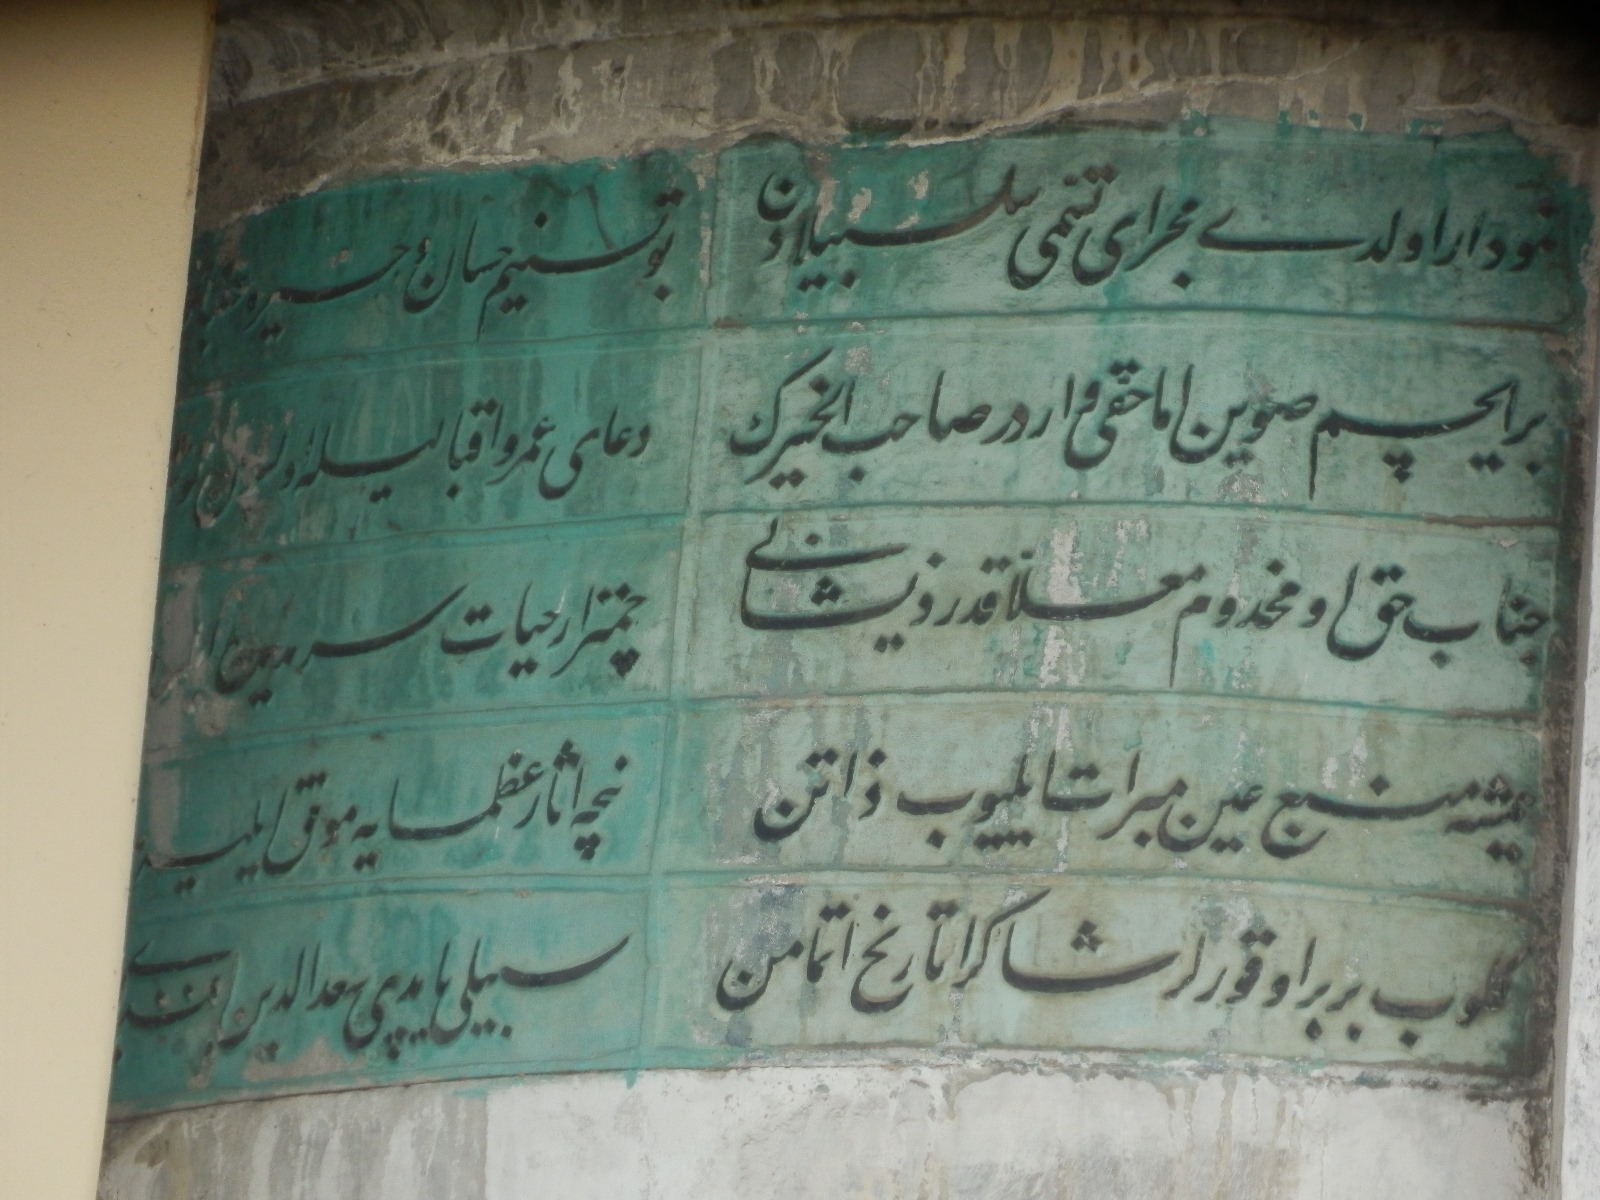 نمودار اولدی مجرای تنمی سلسبیلادن
بو تسنیم حسان و خیره
برایچیم صوین اما حقی وار در صاحب الخیرك
دعای عمر و اقبالیله اولسون
جناب حق او مخدوم معلا قدر ذیشانی
چمنزار حیات سرمدین
همیشه منبع عین مبرات ایلیوب ذاتن
نیچه اثار عظمایه موفق ایلیه
كلوب بربر اوقورلر شاكرا تاریخ اتمامن
سبیلی یاپدی سعدالدین افندی